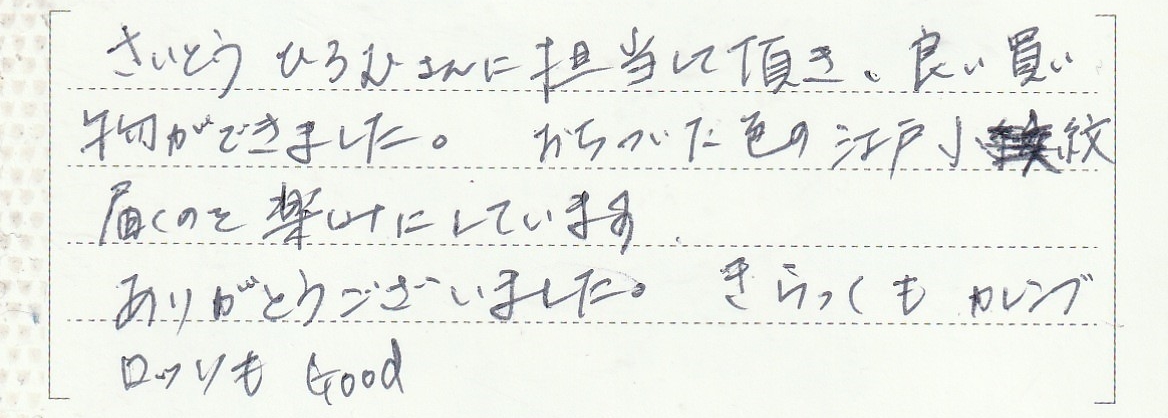 さいとう ひろむさんに担当して頂き、良い買い
物ができました。 おちついた色の江戸小紋
届くのを楽しみにしています.
ありがとうございました。 きらっくも カレンブ
ロッソも Good